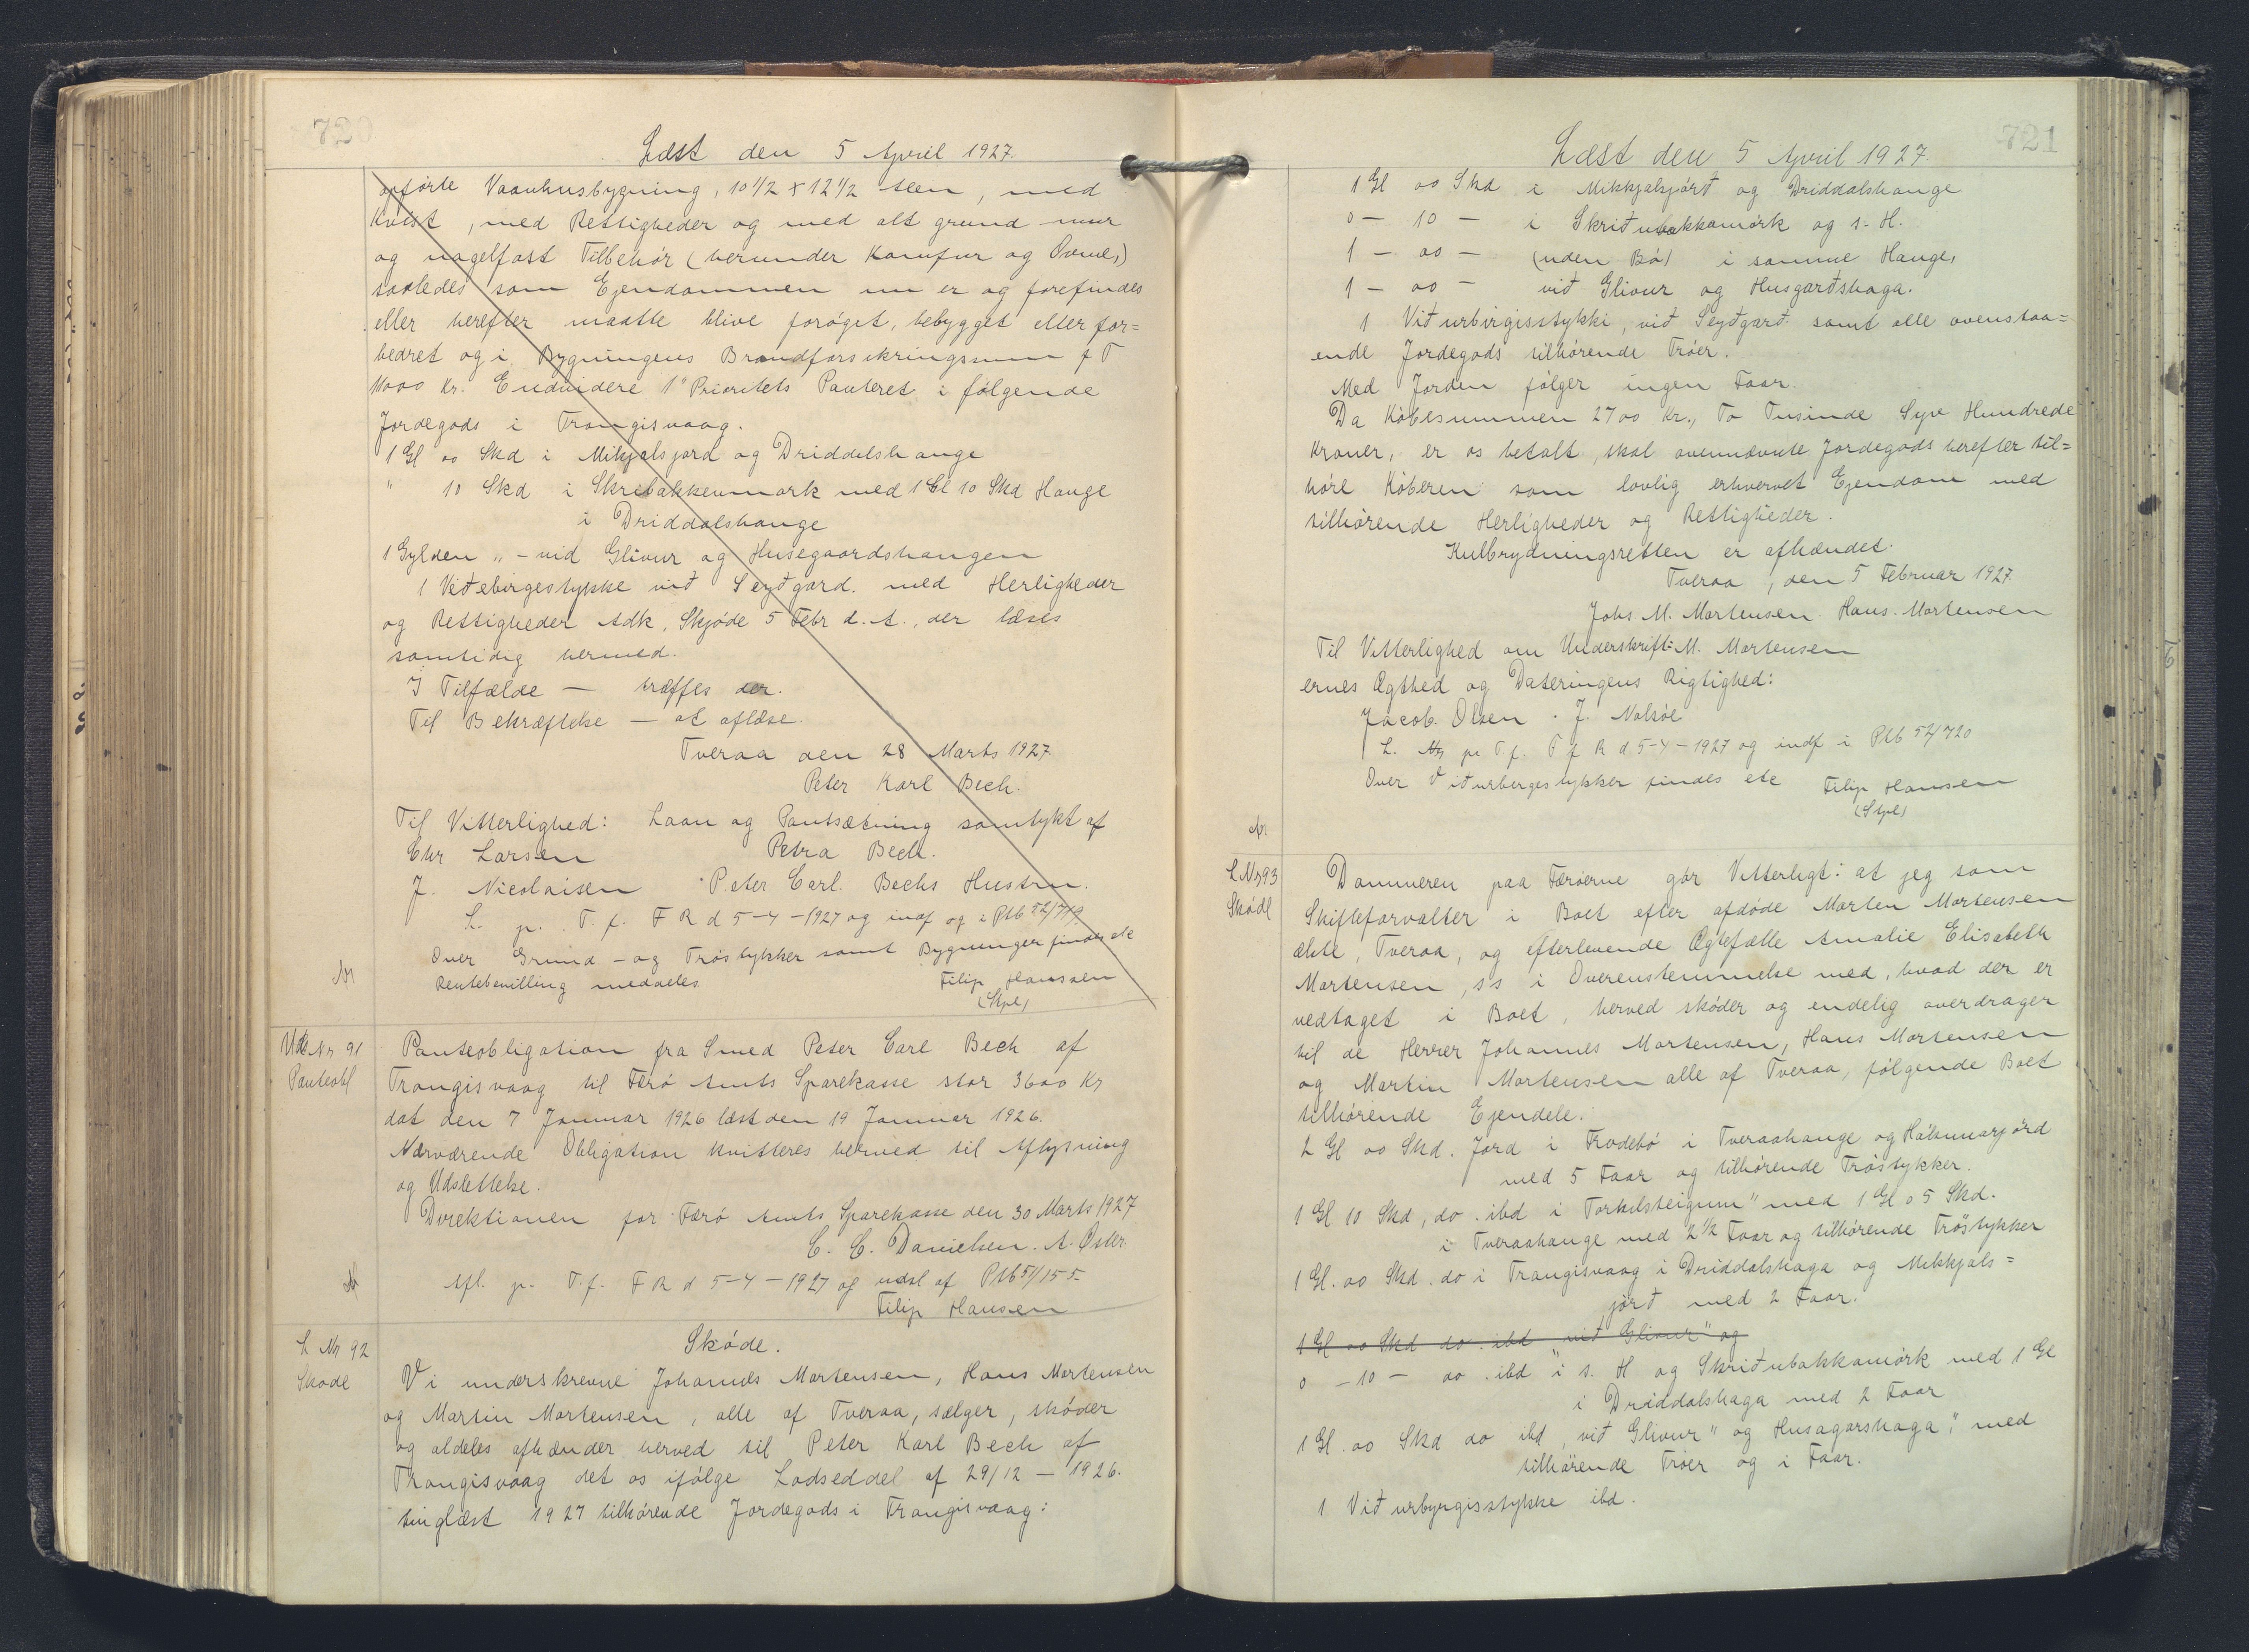 720
Læst den 5 April 1927.
opførte Vaanhusbygning, 10 1/2 x 12 1/2 Alen, med
Kvist, med Rettigheder og med alt grund- mur
og nagelfast Tilbehør (herunder Komfur og Ovne,)
saaledes som Ejendommen nu er og forefindes
eller herefter maatte blive forøget, bebygget eller for=
bedret og i Bygningens Brandforsikringssum p T
11000 Kr. Endvidere 1' Prioritets Panteret i følgende
Jordegods i Trongisvaag.
1 Gl 00 Skd i Mikjalsjørd og Driddalshauge
" 10 Skd i Skrebakkenmørk med 1 Gl 10 Skd Hauge
i Driddalshauge
1 Gylden " - vid Glivur og Husegaardshaugen
1 Viðebirgestykke við Seyðgard. med Herligheder
og Rettigheder Adk, Skjøde 5 Febr d. A., der læses
samtidig hermed.
I Tilfælde — træffes der.
Til Bekræftelse — at aflæse.
Tveraa den 28 Marts 1927
Peter Karl Bech.
Til Vitterlighed: Laan og Pantsætning samtykt af
Chr Larsen Petra Bech.
J. Nicolaisen Peter Carl. Bechs Hustru.
L. p. T. f. F R d 5-4-1927 og indf og i Ptb 52/719
Over Grund- og Trøstykker samt Bygninger findes ete
Rentebevilling meddeles
Filip Hanssen
(Skpl)
Udsl Nr 91
Panteobl
Panteobligation fra Smed Peter Carl Bech af
Trongisvaag til Færø Amts Sparekasse stor 3600 Kr
dat den 7 Januar 1926 læst den 19 Januar 1926.
Nærværende Obligation kvitteres herved til Aflysning
og Udslettelse.
Direktionen for Færø Amts Sparekasse den 30 Marts 1927
C. C. Danielsen. A. Øster.
Afl. p. T. f. F R d 5-4-1927 og udsl af Ptb 51/155
Filip Hansen
L Nr 92
Skøde
Skøde.
Vi underskrevne Johannes Mortensen, Hans Mortensen
og Martin Mortensen, alle af Tveraa, sælger, skøder
og aldeles afhænder herved til Peter Karl Bech af
Trongisvaag det os ifølge Lodseddel af 29/12 - 1926.
tinglæst 1927 tilhørende Jordegods i Trongisvaag:
721
Læst den 5 April 1927.
1 Gl 00 Skd i Mikkjalsjørð og Driddalshauge
0 - 10 - i Skriðubakkamørk og s. H.
1 - 00 - (uden Bø) i samme Hauge,
1 - 00 - við Glivur og Husgarðshaga.
1 Viðurbirgisstykki, við Seyðgarð samt alle ovenstaa=
ende Jordegods tilhørende Trøer.
Med Jorden følger ingen Faar.
Da Købesummen 2700 Kr., To Tusinde Syv Hundrede
Kroner, er os betalt, skal ovennævnte Jordegods herefter til=
høre Køberen som lovlig erhvervet Ejendom med
tilhørende Herligheder og Rettigheder.
Kulbrydningsretten er afhændet.
Tveraa, den 5 Februar 1927.
Johs M. Mortensen. Hans. Mortensen
Til Vitterlighed om Underskrift= M. Mortensen
ernes Ægthed og Dateringens Rigtighed:
Jacob. Olsen. J. Nolsøe
L. Nr p. T. f. F f R d 5-4-1927 og indf i Ptb 52/720
Over Viðurbergestykker findes ete Filip Hansen
(Skpl)
L Nr 93
Skøde
Dommeren paa Færøerne gør Vitterligt: at jeg som
Skifteforvalter i Boet efter afdøde Morten Mortensen
ældre, Tveraa, og efterlevende Ægtefælle Amalie Elisabeth
Mortensen, ss i Overenstemmelse med, hvad der er
vedtaget i Boet, herved skøder og endelig overdrager
til de Herrer Johannes Mortensen, Hans Mortensen
og Martin Mortensen alle af Tveraa, følgende Boet
tilhørende Ejendele:
2 Gl 00 Skd. Jord i Frodebø i Tveraahauge og Hákunarjørd
med 5 Faar og tilhørende Trøstykker.
1 Gl 10 Skd, do. ibd i Torkilsteigum" med 1 Gl 05 Skd.
i Tveraahauge med 2 1/2 Faar og tilhørende Trøstykker
1 Gl. 00 Skd. do i Trangisvaag i Driddalshaga og Mikkjals=
jørð med 2 Faar.
1 Gl 00 Skd do. ibd "við Glivur" og
0 - 10 - do. ibd i s. H og Skriðubakkamørk med 1 Gl
i Driddalshaga med 2 Faar
1 Gl. 00 Skd do ibd, við Glivur" og Husagarshaga", med
tilhørende Trøer og i Faar.
1 Viðurbyrgisstykke ibd.